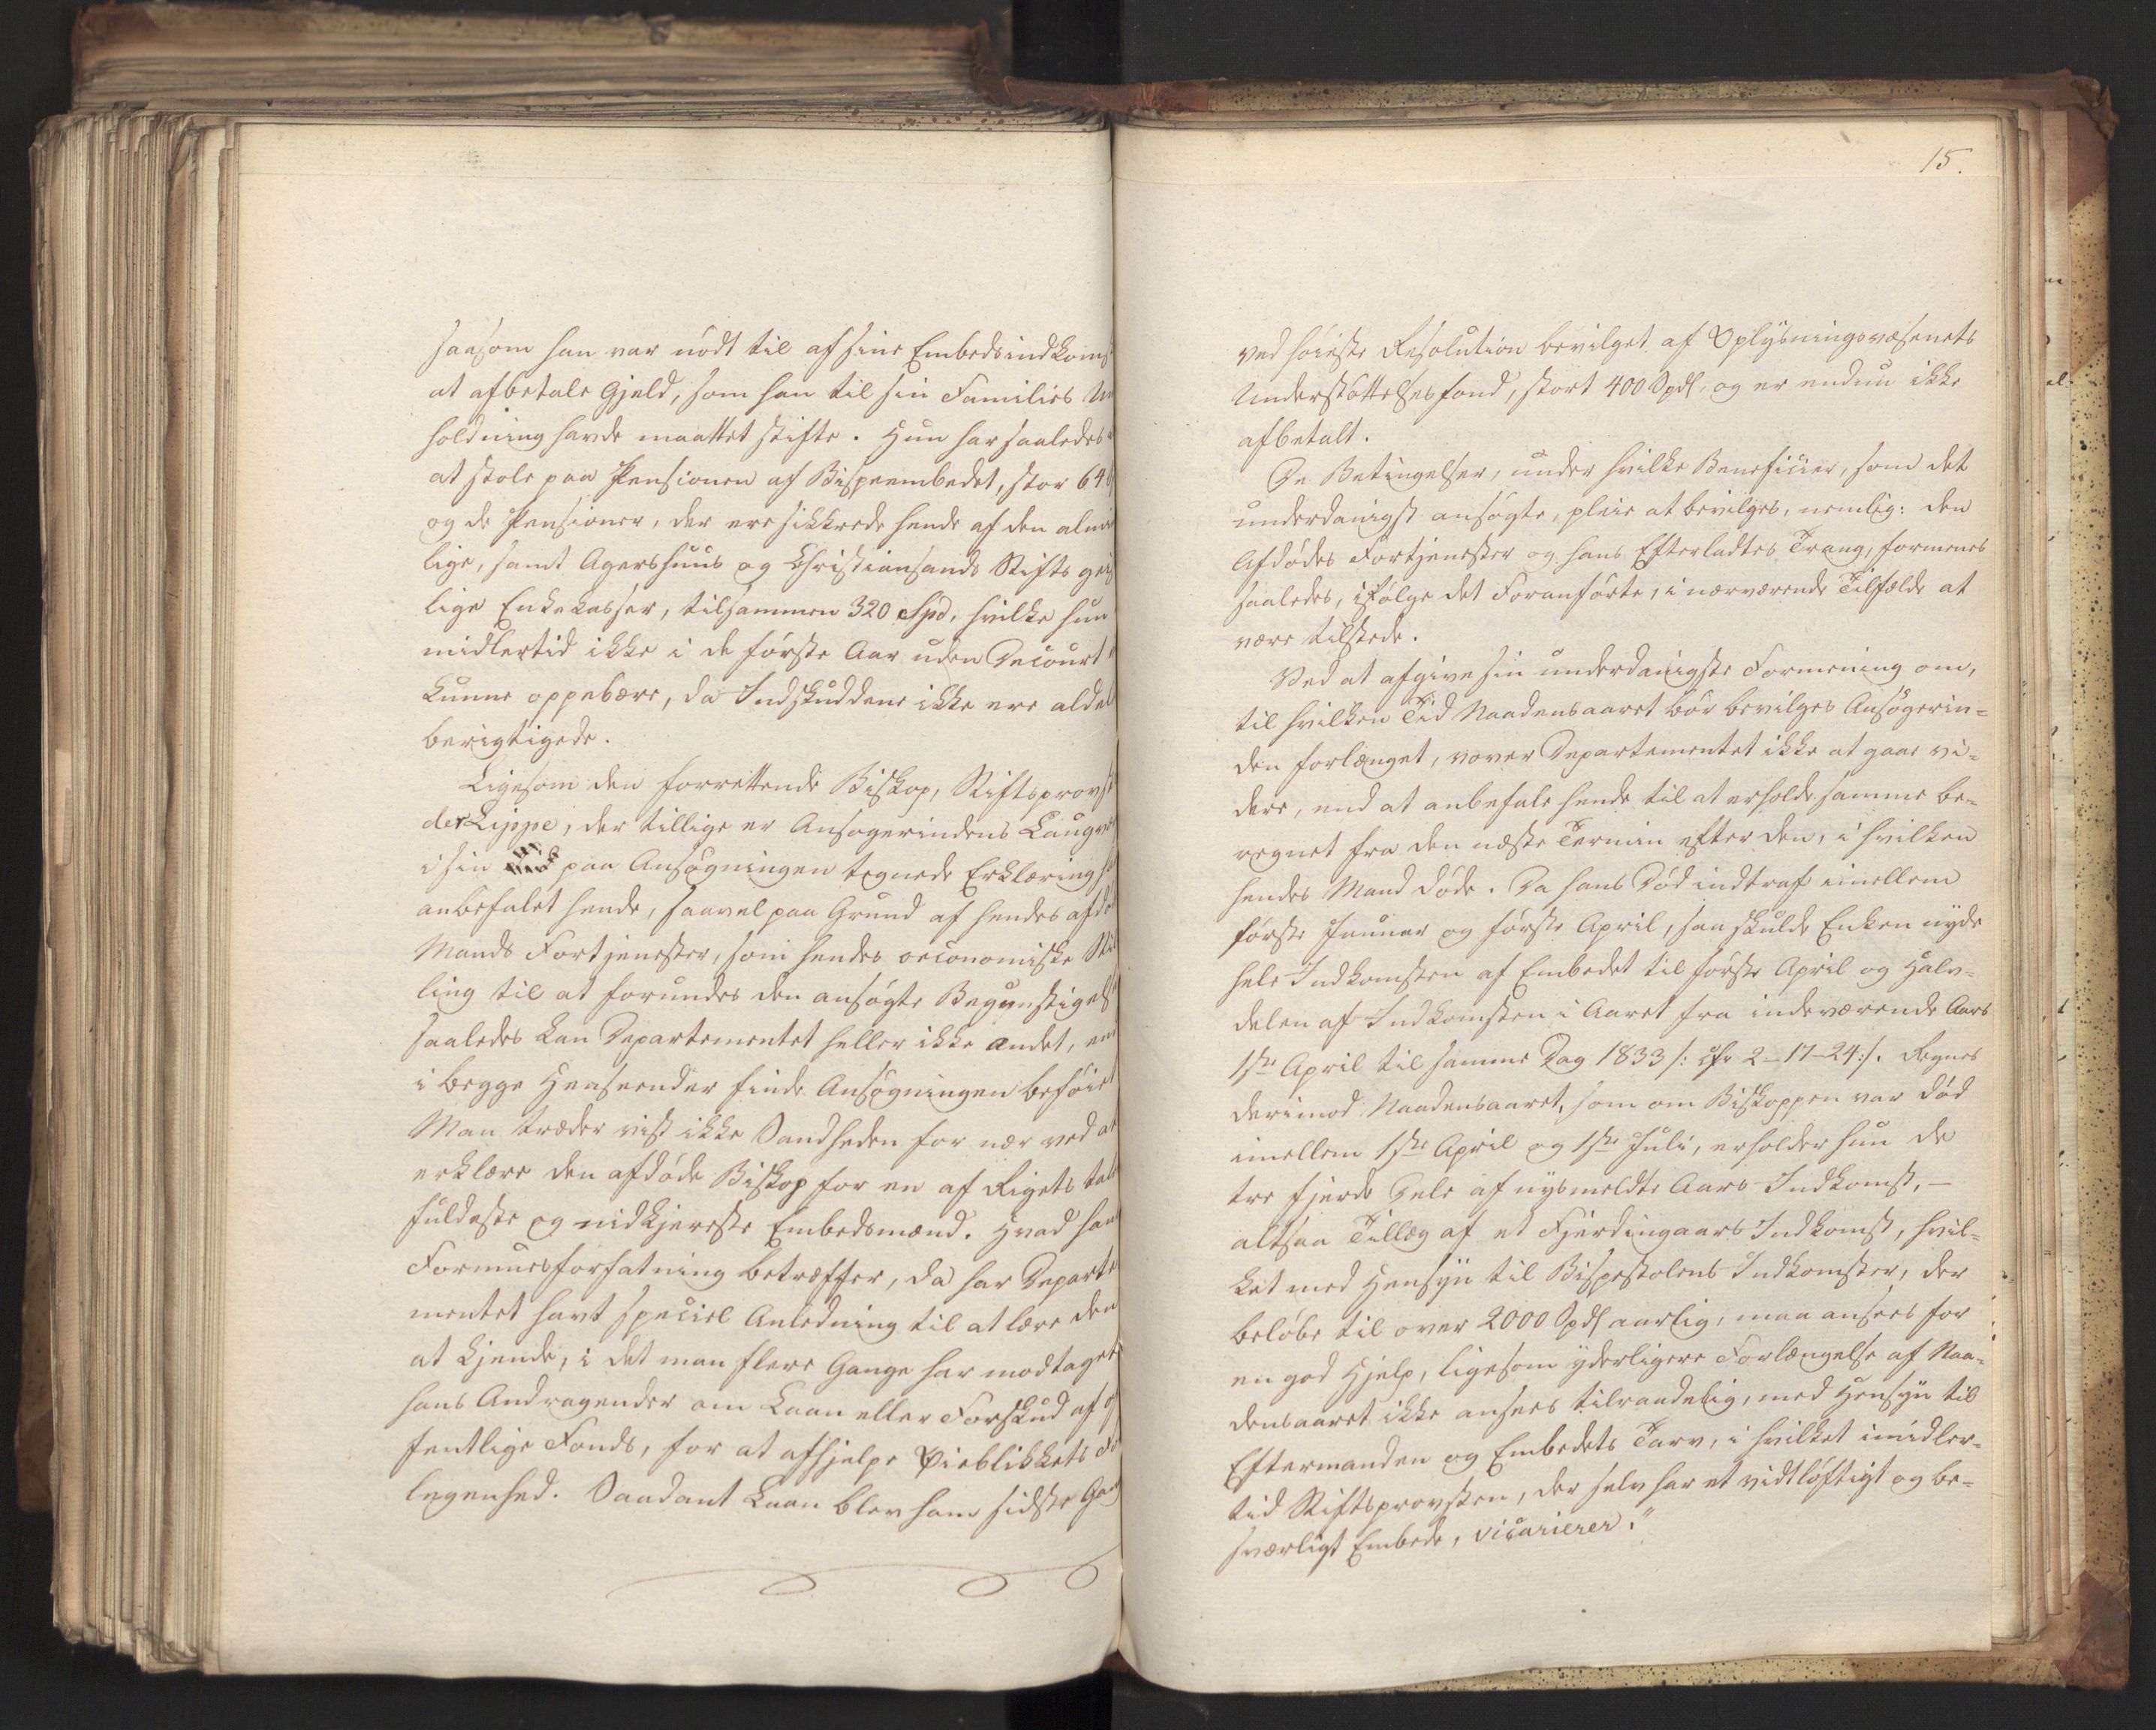 saasom han var nødt til af sine Embedsindkoms
at afbetale Gjeld, som han til sin Families Un
holdning havde maattet stifte. Hun har saaledes
at stole paa Pensionen af Bispeembedet, stor 64
og de Pensioner, der ere sikkrede hende af den almi
lige, samt Agershuus og Christiansands Stifts gei
lige Enkekasser, tilsammen 320 Spd, hvilke hun
midlertid ikke i de første Aar uden Decourt
kunne oppebære, da Indskuddene ikke ere aldel
berigtigede.
Ligesom den forrettende Biskop, Stiftsprovst
der Lippe, der tillige er Ansøgerindens Laugvæ
i sin paa Ansøgningen tegnede Erklæring h
anbefalet hende, saavel paa Grund af hendes afdø
Mands Fortjenester, som hendes oeconomiske Stil
ling til at forundes den ansøgte Begunstigels
saaledes kan Departementet heller ikke andet, en
i begge Henseender finde Ansøgningen beføiet
Man træder vist ikke Sandheden for nær ved at
erklære den afdøde Biskop for en af Rigets tale
fuldeste og nidkjereste Embedsmænd. Hvad han
Formuesforfatning betræffer, da har Departe
mentet havt speciel Anledning til at lære den
at kjende, i det man flere Gange har modtaget
hans Andragender om Laan eller Forskud af of
fentlige Fonds, for at afhjelpe Øieblikkets Fo
legenhed. Saadant Laan blev ham sidste Gang
15.
ved høieste Resolution bevilget af Oplysningsvæsenets
Understøttelsesfond, stort 400 Spdl, og er endnu ikke
afbetalt.
De Betingelser, under hvilke Beneficier, som det
underdanigst ansøgte, pleie at bevilges, nemlig: den
Afdødes Fortjenester og hans Efterladtes Trang, formenes
saaledes, ifølge det Foranførte, i nærværende Tilfælde at
være tilstede.
Ved at afgive sin underdanigste Formening om,
til hvilken Tid Naadensaaret bør bevilges Ansøgerin-
den forlænget, vover Departementet ikke at gaae vi-
dere, end at anbefale hende til at erholde samme be-
regnet fra den næste Termin efter den, i hvilken
hendes Mand døde. Da hans Død indtraf imellem
første Januar og første April, saa skulde Enken nyde
hele Indkomsten af Embedet til første April og Halv-
delen af Indkomsten i Aaret fra indeværende Aars
1ste April til samme Dag 1833 /: cfr 2-17-24 :/. Regnes
derimod Naadensaaret, som om Biskoppen var død
imellem 1ste April og 1ste Juli, erholder hun de
tre fjerde Dele af nysmeldte Aars-Indkomst, -
altsaa Tillæg af et Fjerdingaars Indkomst, hvil-
ket med Hensyn til Bispestolens Indkomster, der
beløbe til over 2000 Spdl aarlig, maa ansees for
en god Hjelp, ligesom yderligere Forlængelse af Naa-
densaaret ikke ansees tilraadelig, med Hensyn til
Eftermanden og Embedets Tarv, i hvilket imidler-
tid Stiftsprovsten, der selv har et vidtløftigt og be-
sværligt Embede, vicarierer."